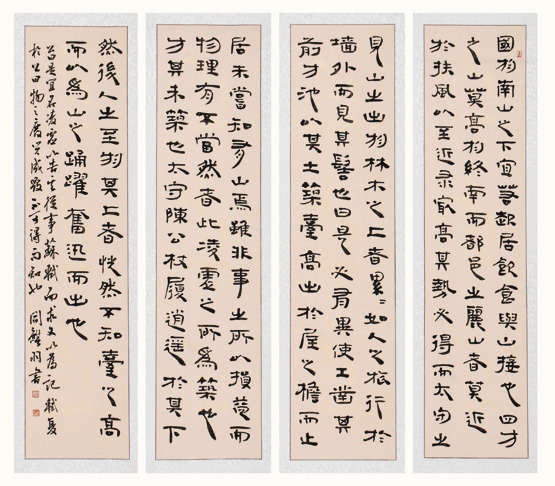 國於南山之下宜若起居飲食與山接也四方
之山莫高於終南而都邑之麗山者莫近
於扶風以至近求最高其勢必得而太守之
見山之出於林木之上者累〻如人之旅行於
墻外而見其髻也曰是必有異使工鑿其
前方池以其土築臺高出於屋之檐而止
居未嘗知有山焉雖非事之所以損益而
物理有不當然者此凌虛之所為築也
方其未築也太守陳公杖履逍遙於其下
然後人之至於其上者恍然不知臺之高
而以為山之踊躍奮迅而出也
公曰是宜名凌虛以告其從事蘇軾而求文以為記軾復
於公曰物之廢興成毀不可得而知也 羽書